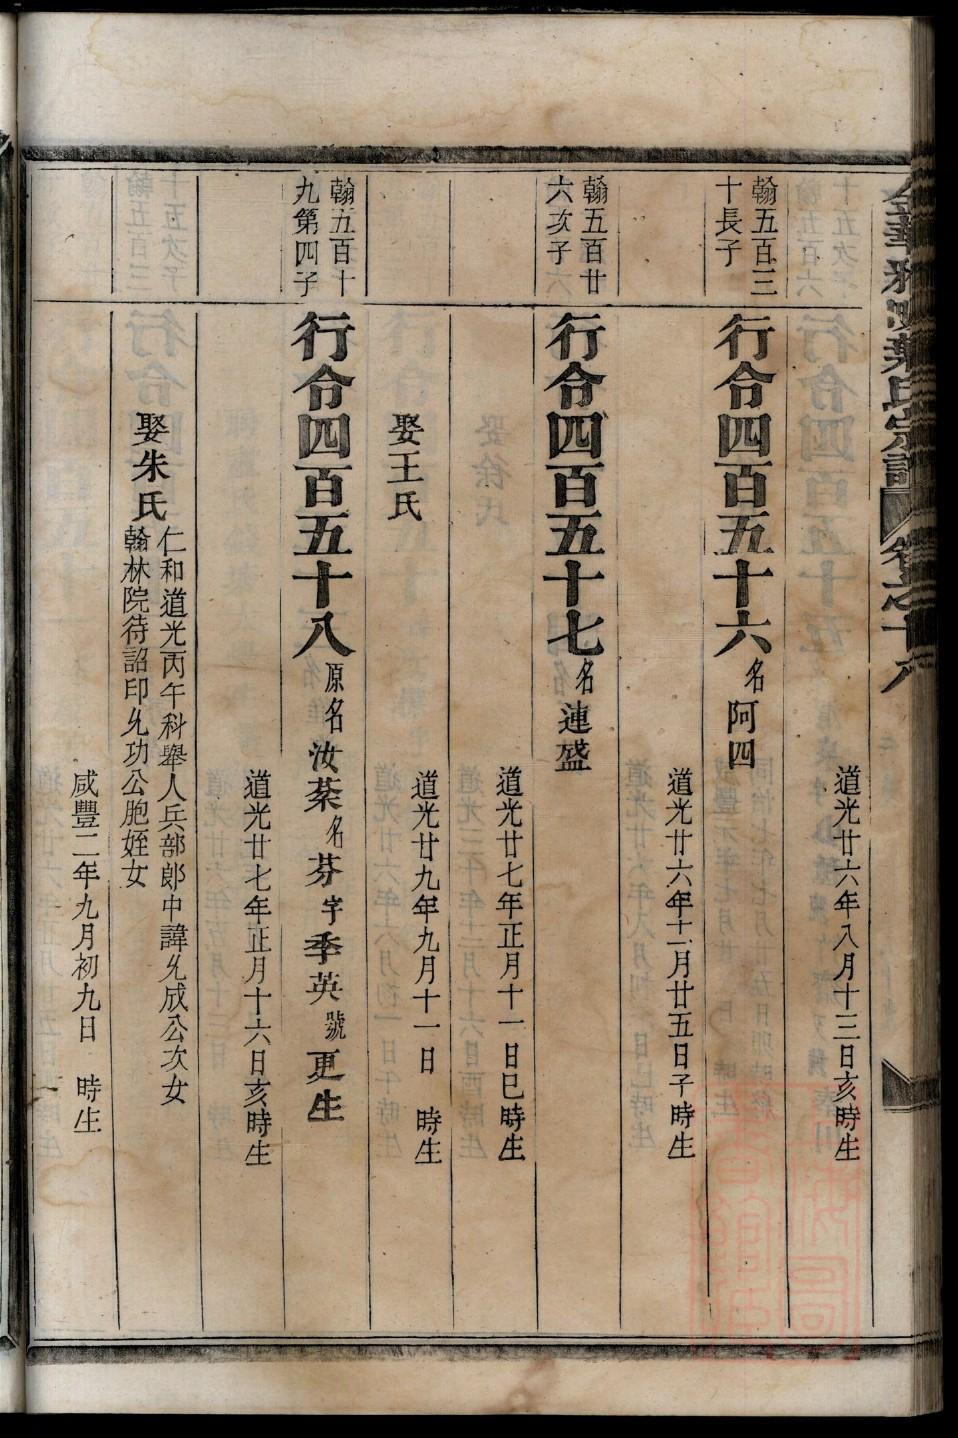 葉氏宗譜 卷之十八
道光廿六年八月十三日亥時生
翰五百三十長子
行令四百五十六 名阿四
道光廿六年十一月廿五日子時生
翰五百廿六次子
行令四百五十七 名連盛
道光廿七年正月十一日巳時生
娶王氏
道光廿九年九月十一日 時生
翰五百十九第四子
行令四百五十八 原名汝棻名芬字季英號更生
道光廿七年正月十六日亥時生
娶朱氏 仁和道光丙午科舉人兵部郎中諱允成公次女
翰林院待詔印允功公胞姪女
咸豐二年九月初九日 時生